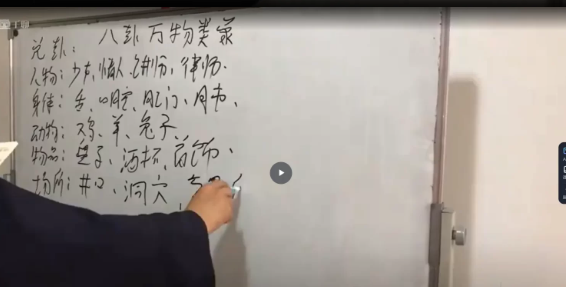 八卦万物类象
兑卦：
人物：少女、情人、讲师、律师、
身体：舌、口腔、肛门、肺、
动物：鸡、羊、兔子、
物品：盘子、酒杯、首饰、
场所：井口、洞穴、